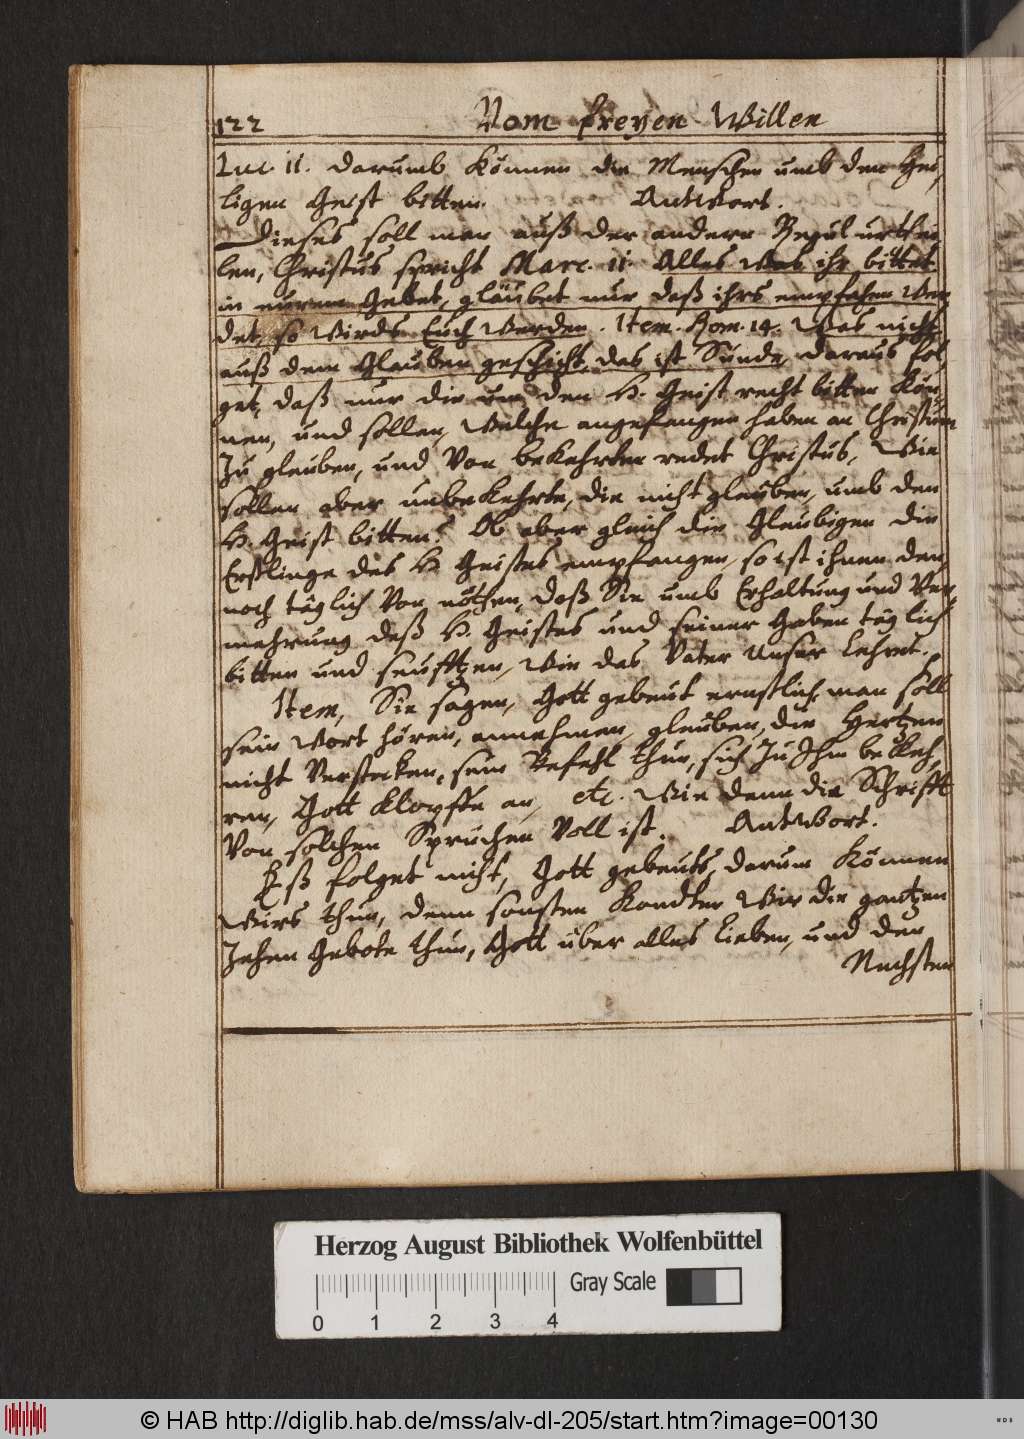 122 Vom freyen Willen
Luc. 11. darumb können die Menschen umb den Hei,
ligen Geist bitten. Antwort.
Dieses soll man auß der andern Regul urthei
len, Christus spricht Marc. 11. Alles was ihr bittet
in eurem Gebet, gläubet nur daß ihrs empfahen wer
det, so wirds Euch werden. Item. Rom. 14. Was nicht
auß dem Glauben geschicht, das ist Sünde, daraus fol,
get, daß nur die umb den H. Geist recht bitten kön,
nen, und sollen, welche angefangen haben an Christum
zu glauben, und von bekehrten redet Christus, Wie
sollen aber unbekehrte, die nicht glauben, umb den
H. Geist bitten? Ob aber gleich die Glaubigen die
Erstlinge des H. Geistes empfangen, so ist ihnen den,
noch täglich von nöthen, daß Sie umb Erhaltung und Ver,
mehrung deß H. Geistes und seiner Gaben täglich
bitten und seufftzen, wie das Vater Unser lehret.
Item, Sie sagen, Gott gebeut ernstlich, man soll
sein Wort hören, annehmen, glauben, die Hertzen
nicht verstocken, sein Befehl thun, sich zu Ihm bekeh,
ren, Gott klopffe an, etc. Wie denn die Schrifft
von solchen Sprüchen voll ist. Antwort.
Eß folget nicht, Gott gebeuts, darum können
wirs thun, denn sonsten kondten wir die gantzen
Zehen Gebote thun, Gott über alles lieben, und den
Nechsten
Herzog August Bibliothek Wolfenbüttel
Gray Scale
0 1 2 3 4
© HAB http://diglib.hab.de/mss/alv-dl-205/start.htm?image=00130